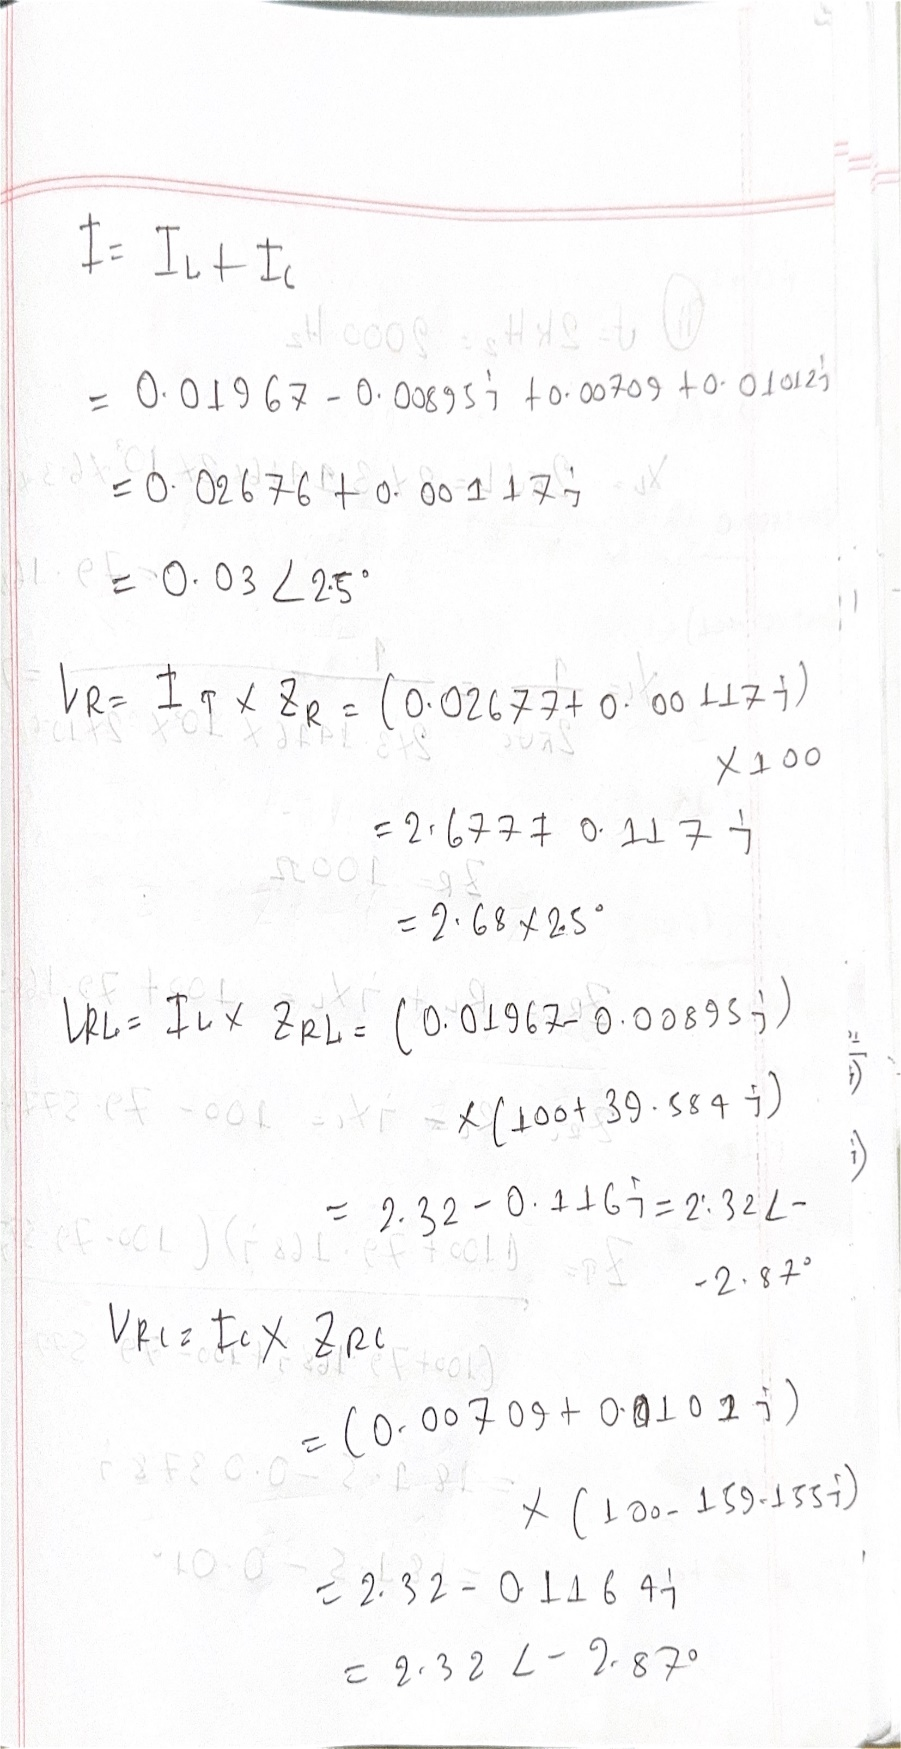 I = IL + IC
= 0.01967 - 0.00895j + 0.00709 + 0.01012j
= 0.02676 + 0.00117j
= 0.03 ∠2.5°
VR = IT × ZR = (0.02677 + 0.00117j)
×100
= 2.677+ 0.117j
= 2.68 ∠2.5°
VRL = IL × ZRL = (0.01967 - 0.00895j)
×(100+39.584j)
= 2.32 - 0.116j = 2.32∠-
-2.87°
VRC = IC × ZRC
= (0.00709 + 0.0101j)
× (100 - 159.155j)
= 2.32 - 0.1164j
= 2.32 ∠-2.87°